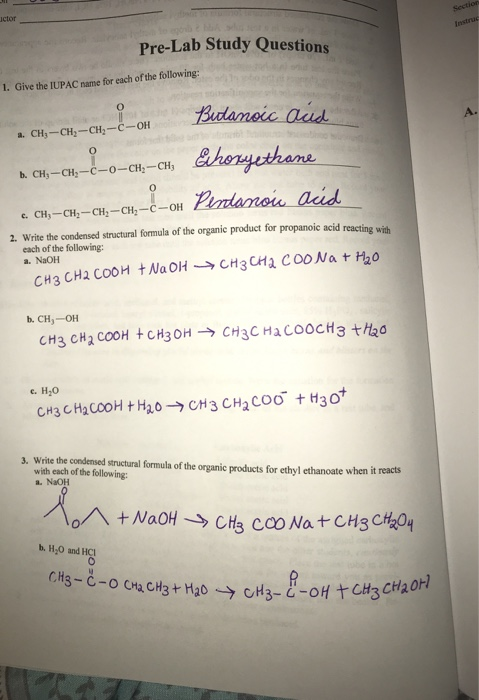 Section
Instruc
uctor
Pre-Lab Study Questions
1. Give the IUPAC name for each of the following:
O
a. CH₃—CH₂—CH₂—C—OH Butanoic acid
O
b. CH₃—CH₂—C—O—CH₂—CH₃ Ethoxyethane
O
c. CH₃—CH₂—CH₂—CH₂—C—OH Pentanoic acid
A.
2. Write the condensed structural formula of the organic product for propanoic acid reacting with
each of the following:
a. NaOH
CH3 CH2 COOH + NaOH → CH3CH2 COONa + H2O
b. CH₃—OH
CH3 CH2 COOH + CH3OH → CH3CH2COOCH3 + H2O
c. H₂O
CH3CH2COOH + H2O → CH3CH2COO⁻ + H3O⁺
3. Write the condensed structural formula of the organic products for ethyl ethanoate when it reacts
with each of the following:
a. NaOH
O
O + NaOH → CH3 COONa + CH3 CH2O4
b. H₂O and HCl
O O
CH3-C-O CH2CH3 + H2O → CH3-C-OH + CH3CH2OH